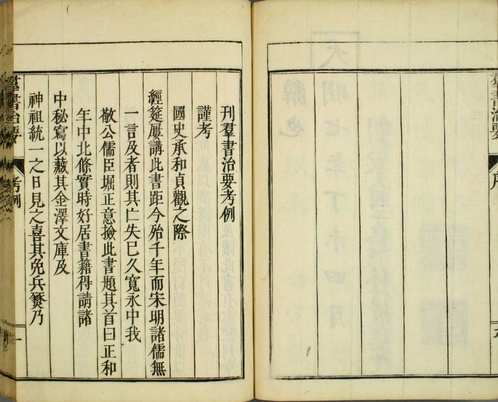 羣書治要
序
刊羣書治要考例
謹考
國史承和貞觀之際
經筵屢講此書距今殆千年而宋明諸儒無
一言及者則其亡失已久寬永中我
敬公儒臣堀正意撿此書題其首曰正和
年中北條實時好居書籍得請諸
中秘寫以藏其金澤文庫及
神祖統一之日見之喜其免兵燹乃
羣書治要
考例
一